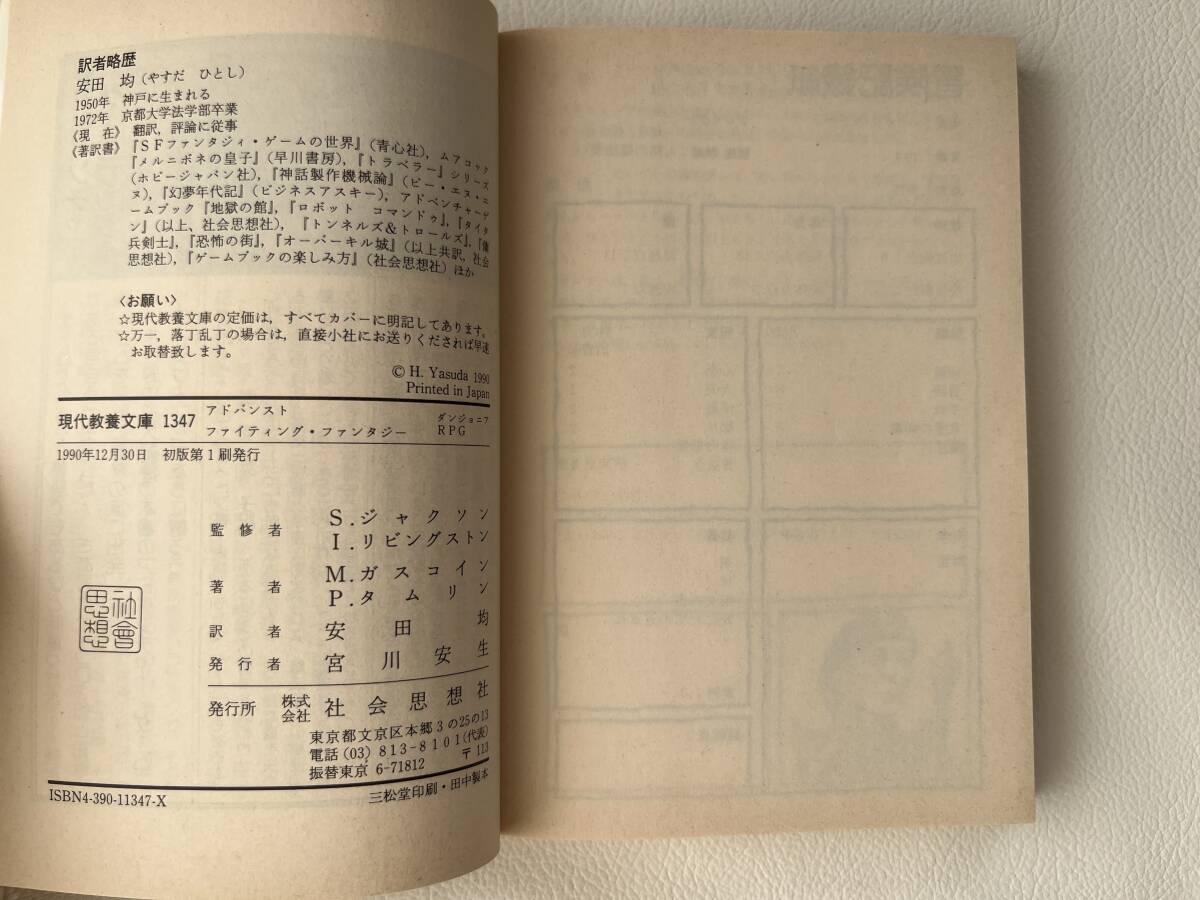 訳者略歴
安田　均(やすだ　ひとし)
1950年　神戸に生まれる
1972年　京都大学法学部卒業
《現　在》　翻訳，評論に従事
《著訳書》『ＳＦファンタジィ・ゲームの世界』(青心社)，ムアコック
『メルニボネの皇子』(早川書房)，『トラベラー』シリーズ
(ホビージャパン社)，『神話製作機械論』(ビー・エヌ・エ
ヌ)，『幻夢年代記』(ビジネスアスキー)，アドベンチャーゲ
ームブック『地獄の館』，『ロボット　コマンドゥ』，『タイタ
ン』(以上、社会思想社)，『トンネルズ&トロールズ』，『傭
兵剣士』，『恐怖の街』，『オーバーキル城』(以上共訳，社会
思想社)，『ゲームブックの楽しみ方』(社会思想社)ほか
〈お願い〉
☆現代教養文庫の定価は，すべてカバーに明記してあります。
☆万一，落丁乱丁の場合は，直接小社にお送りくだされば早速
お取替致します。
© H. Yasuda 1990
Printed in Japan
現代教養文庫 1347　アドバンスト
ファイティング・ファンタジー　ダンジョニア
RPG
1990年12月30日　初版第1刷発行
監修者　S.ジャクソン
I.リビングストン
著　者　M.ガスコイン
P.タムリン
訳　者　安田　均
発行者　宮川安生
発行所　株式会社　社会思想社
東京都文京区本郷3の25の13
電話(03) 813-8101(代表)
振替東京 6-71812　〒113
ISBN4-390-11347-X　三松堂印刷・田中製本
社會
思想